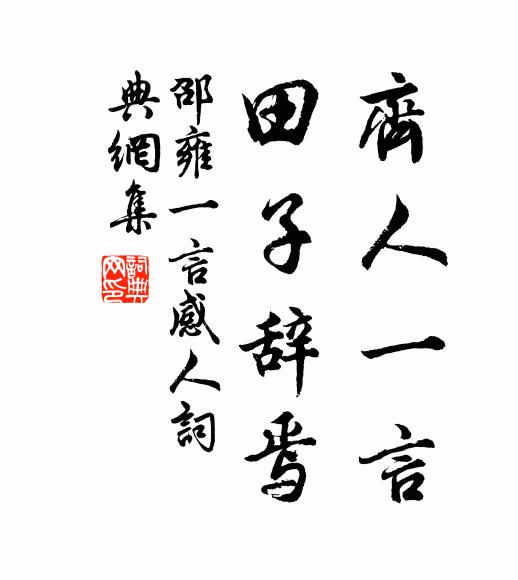 齊人一言
田子辞焉
邵雍一言感人詞
典網集
詞典
网印